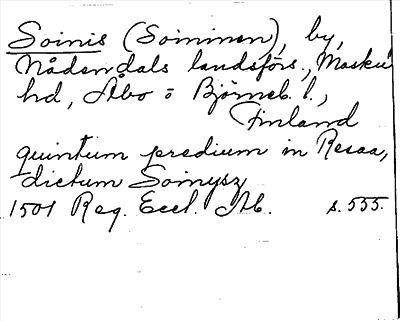 Soinis (Soininen), by,
Nådendals landsförs., Masku
hd, Åbo o Björneb. l.,
Finland
quintum predium in Resaa,
dictum Soinysz
1501 Reg. Eccl. Ab. s. 555.